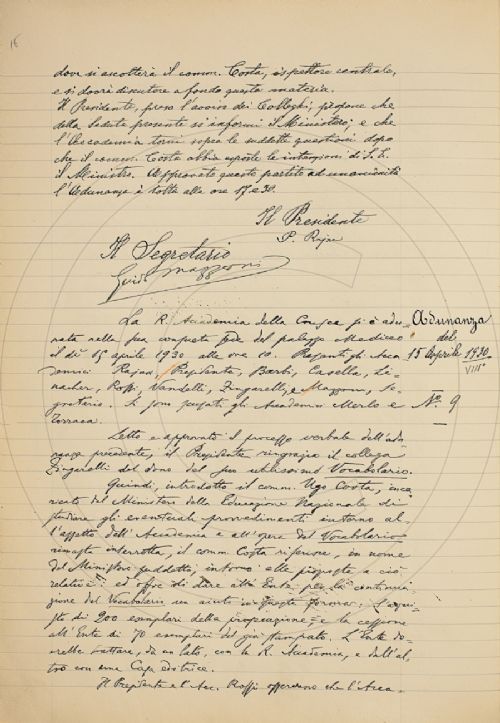 16
dove si ascolterà il comm. Costa, ispettore centrale,
e si dovrà discutere a fondo questa materia.
Il Presidente, preso l'avviso dei Colleghi, propone che
della seduta presente si informi il Ministero; e che
l'Accademia torni sopra le suddette questioni dopo
che il comm. Costa abbia esposte le intenzioni di S. E.
il Ministro. Approvato questo partito ad unanimità
l'Adunanza è tolta alle ore 17 e 30.
Il Presidente
P. Rajna
Il Segretario
Guido Mazzoni
La R. Accademia della Crusca si è adu-
nata nella sua consueta sede del palazzo Mediceo
il dì 15 aprile 1930 alle ore 10. Presenti gli Acca
demici Rajna, Presidente, Barbi, Casella, Li-
nacher, Rossi, Vandelli, Zingarelli, e Mazzoni, Se-
gretario. Si sono scusati gli Accademici Merlo e
Torraca.
Adunanza
del
15 Aprile 1930
VIII°
N.° 9
Letto e approvato il processo verbale dell'adu-
nanza precedente, il Presidente ringrazia il collega
Zingarelli del dono del suo utilissimo Vocabolario.
Quindi, introdotto il comm. Ugo Costa, inca
ricato dal Ministero della Educazione Nazionale di
studiare gli eventuali provvedimenti intorno al-
l'assetto dell'Accademia e all'opera del Vocabolario
rimasta interrotta, il comm. Costa riferisce, in nome
del Ministro suddetto, intorno alle proposte a ciò
relative: ed offre di dare alla Ente per la continua-
zione del Vocabolario un aiuto in questa forma: l'acqui-
sto di 200 esemplari della prosecuzione, e la cessione
all'Ente di 70 esemplari del già stampato. L'Ente do-
vrebbe trattare, da un lato, con la R. Accademia, e dall'al-
tro con una Casa editrice.
Il Presidente e l'Acc. Rossi osservano che l'Acca-